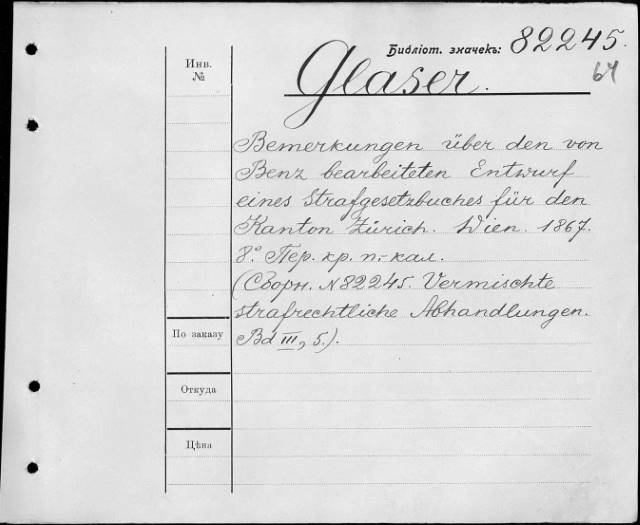 Инв.
№
Библіот. значекъ: 82245.
64
Glaser.
Bemerkungen über den von
Benz bearbeiteten Entwurf
eines Strafgesetzbuches für den
Kanton Zürich. Wien. 1867.
8° Пер. кр. п.-кал.
(Сборн. N 82245. Vermischte
strafrechtliche Abhandlungen.
Bd III, 5.).
По заказу
Откуда
Цѣна